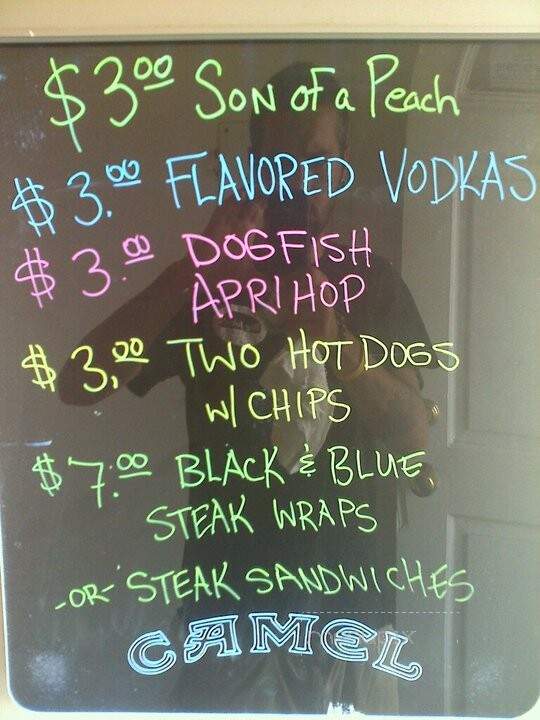 $3.00 Son of a Peach
$3.00 FLAVORED VODKAS
$3.00 DOGFISH
APRIHOP
$3.00 TWO HOT DOGS
w/ CHIPS
$7.00 BLACK & BLUE
STEAK WRAPS
-OR- STEAK SANDWICHES
CAMEL